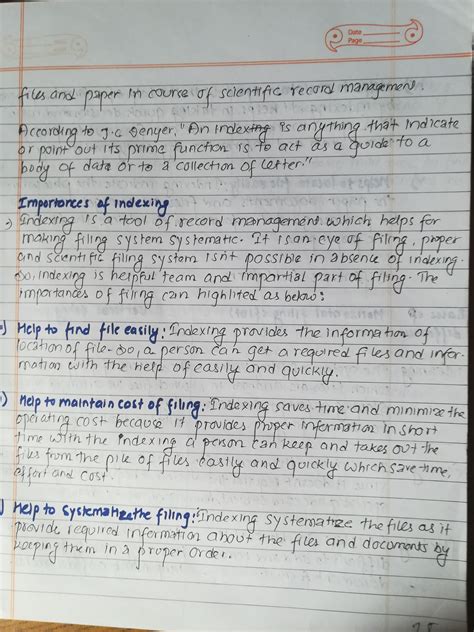 Date
Page
files and paper in course of scientific record management.
According to J.C Denyer, "An indexing is anything that indicate
or point out its prime function is to act as a guide to a
body of data or to a collection of letter."
Importances of indexing
Indexing is a tool of record management which helps for
making filing system systematic. It is an eye of filing, proper
and scientific filing system isn't possible in absence of indexing.
so, Indexing is helpful team and impartial part of filing. The
importances of filing can highlited as below:
Help to find file easily: Indexing provides the information of
location of file. so, a person can get a required files and infor-
mation with the help of easily and quickly.
Help to maintain cost of filing: Indexing saves time and minimize the
operating cost because it provides proper information in short
time with the indexing a person can keep and takes out the
files from the pile of files easily and quickly which save time,
effort and cost.
Help to systematize the filing: Indexing systematize the files as it
provide required information about the files and documents by
keeping them in a proper order.